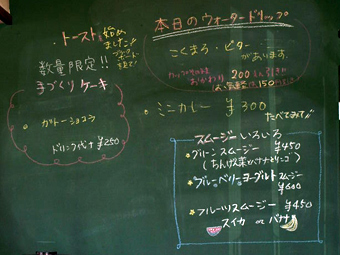 ・トースト始めました!!
数量限定!!
手づくりケーキ
ガトーショコラ
ドリンク代+¥250
本日のウォータードリップ
こくまろ・ビター
があります。
200
150
ミニカレー ¥300
たべてみて!!
スムージーいろいろ
グリーンスムージー ¥450
ブルーベリーヨーグルトスムージー
¥600
フルーツスムージー ¥450
スイカ or バナナ